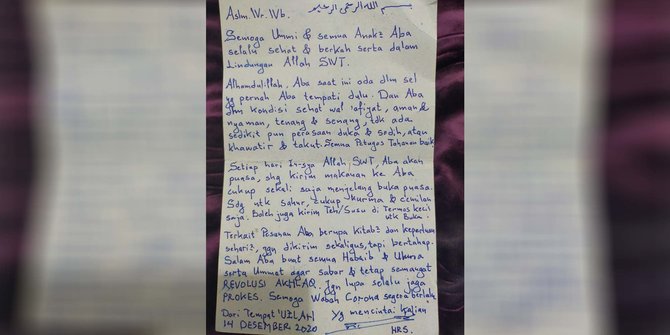 Aslm. Wr. Wb. بسم الله الرحمن الرحيم
Semoga Ummi & semua Anak² Aba
selalu sehat & berkah serta dalam
Lindungan Allah SWT.
Alhamdulillah, Aba saat ini ada dlm sel
yg pernah Aba tempati dulu. Dan Aba
dlm kondisi sehat wal 'afiyat, aman &
nyaman, tenang & senang, tdk ada
sedikit pun perasaan duka & sedih, atau
khawatir & takut. Semua Petugas Tahanan baik
Setiap hari In-sya Allah SWT, Aba akan
puasa, shg kirim makanan ke Aba
cukup sekali saja menjelang buka puasa.
Sdg utk sahur, cukup kurma & cemilan
saja. Boleh juga kirim Teh/Susu di Termos kecil
utk Buka.
Terkait Pesanan Aba berupa kitab² dan keperluan
sehari², jgn dikirim sekaligus, tapi bertahap.
Salam Aba buat semua Habaib & Ulama
serta Ummat agar sabar & tetap semangat
REVOLUSI AKHLAQ. Jgn lupa selalu jaga
PROKES. Semoga Wabah Corona segera berlalu.
Dari Tempat 'UZLAH
14 DESEMBER 2020
Yg mencintai kalian
HRS.